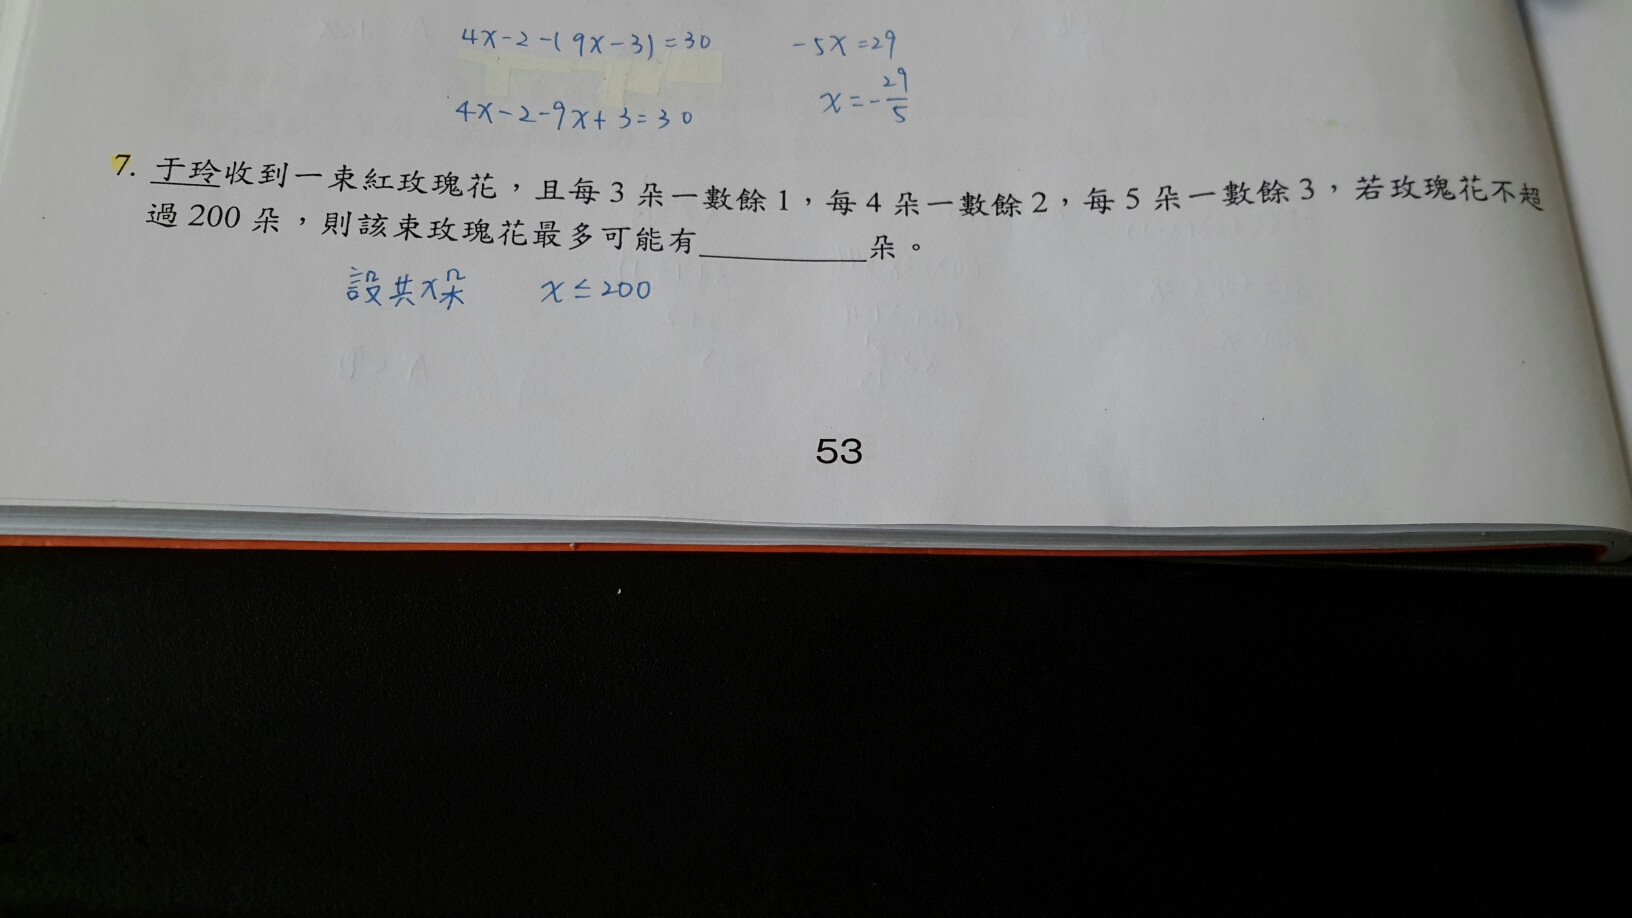 4x-2-(9x-3)=30 -5x=29
4x-2-9x+3=30 x=-29/5
7. 于玲收到一束紅玫瑰花，且每3朵一數餘1，每4朵一數餘2，每5朵一數餘3，若玫瑰花不超
過200朵，則該束玫瑰花最多可能有________朵。
設共x朵 x≤200
53